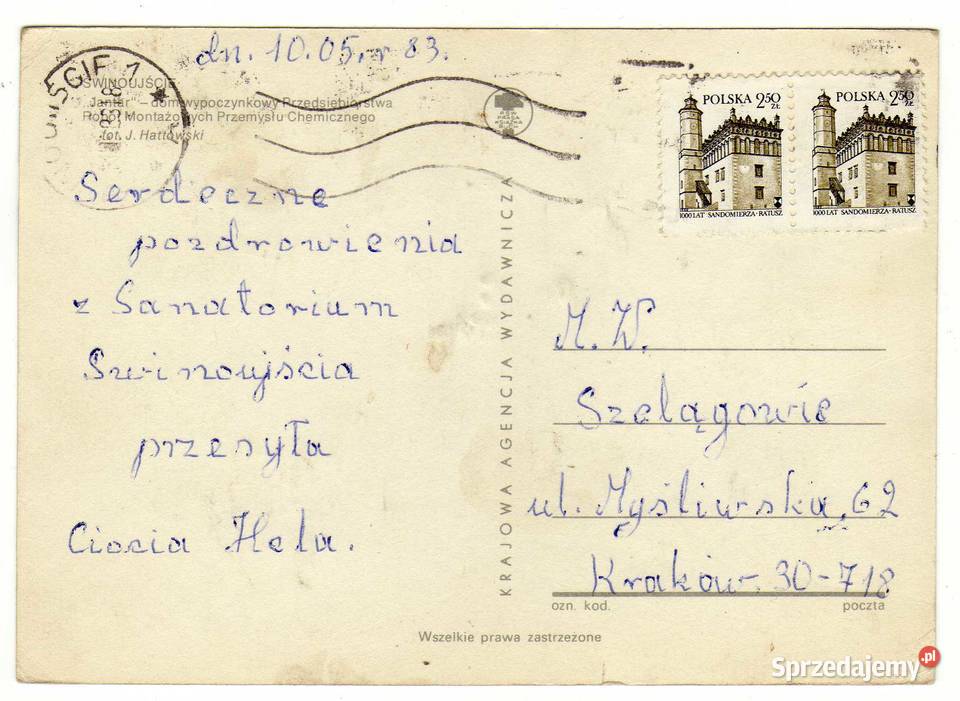 dn. 10.05. r 83.
ŚWINOUJŚCIE
"Jantar" – dom wypoczynkowy Przedsiębiorstwa
Robót Montażowych Przemysłu Chemicznego
fot. J. Hattowski
Serdeczne
pozdrowienia
z Sanatorium
Swinoujścia
przesyła
Ciocia Hela.
KRAJOWA AGENCJA WYDAWNICZA
POLSKA 2,50 ZŁ
1000 LAT SANDOMIERZA • RATUSZ
POLSKA 2,50 ZŁ
1000 LAT SANDOMIERZA • RATUSZ
M. W.
Szelągowie
ul. Myśliwska 62
Kraków 30-718
ozn. kod. poczta
Wszelkie prawa zastrzeżone
Sprzedajemy.pl